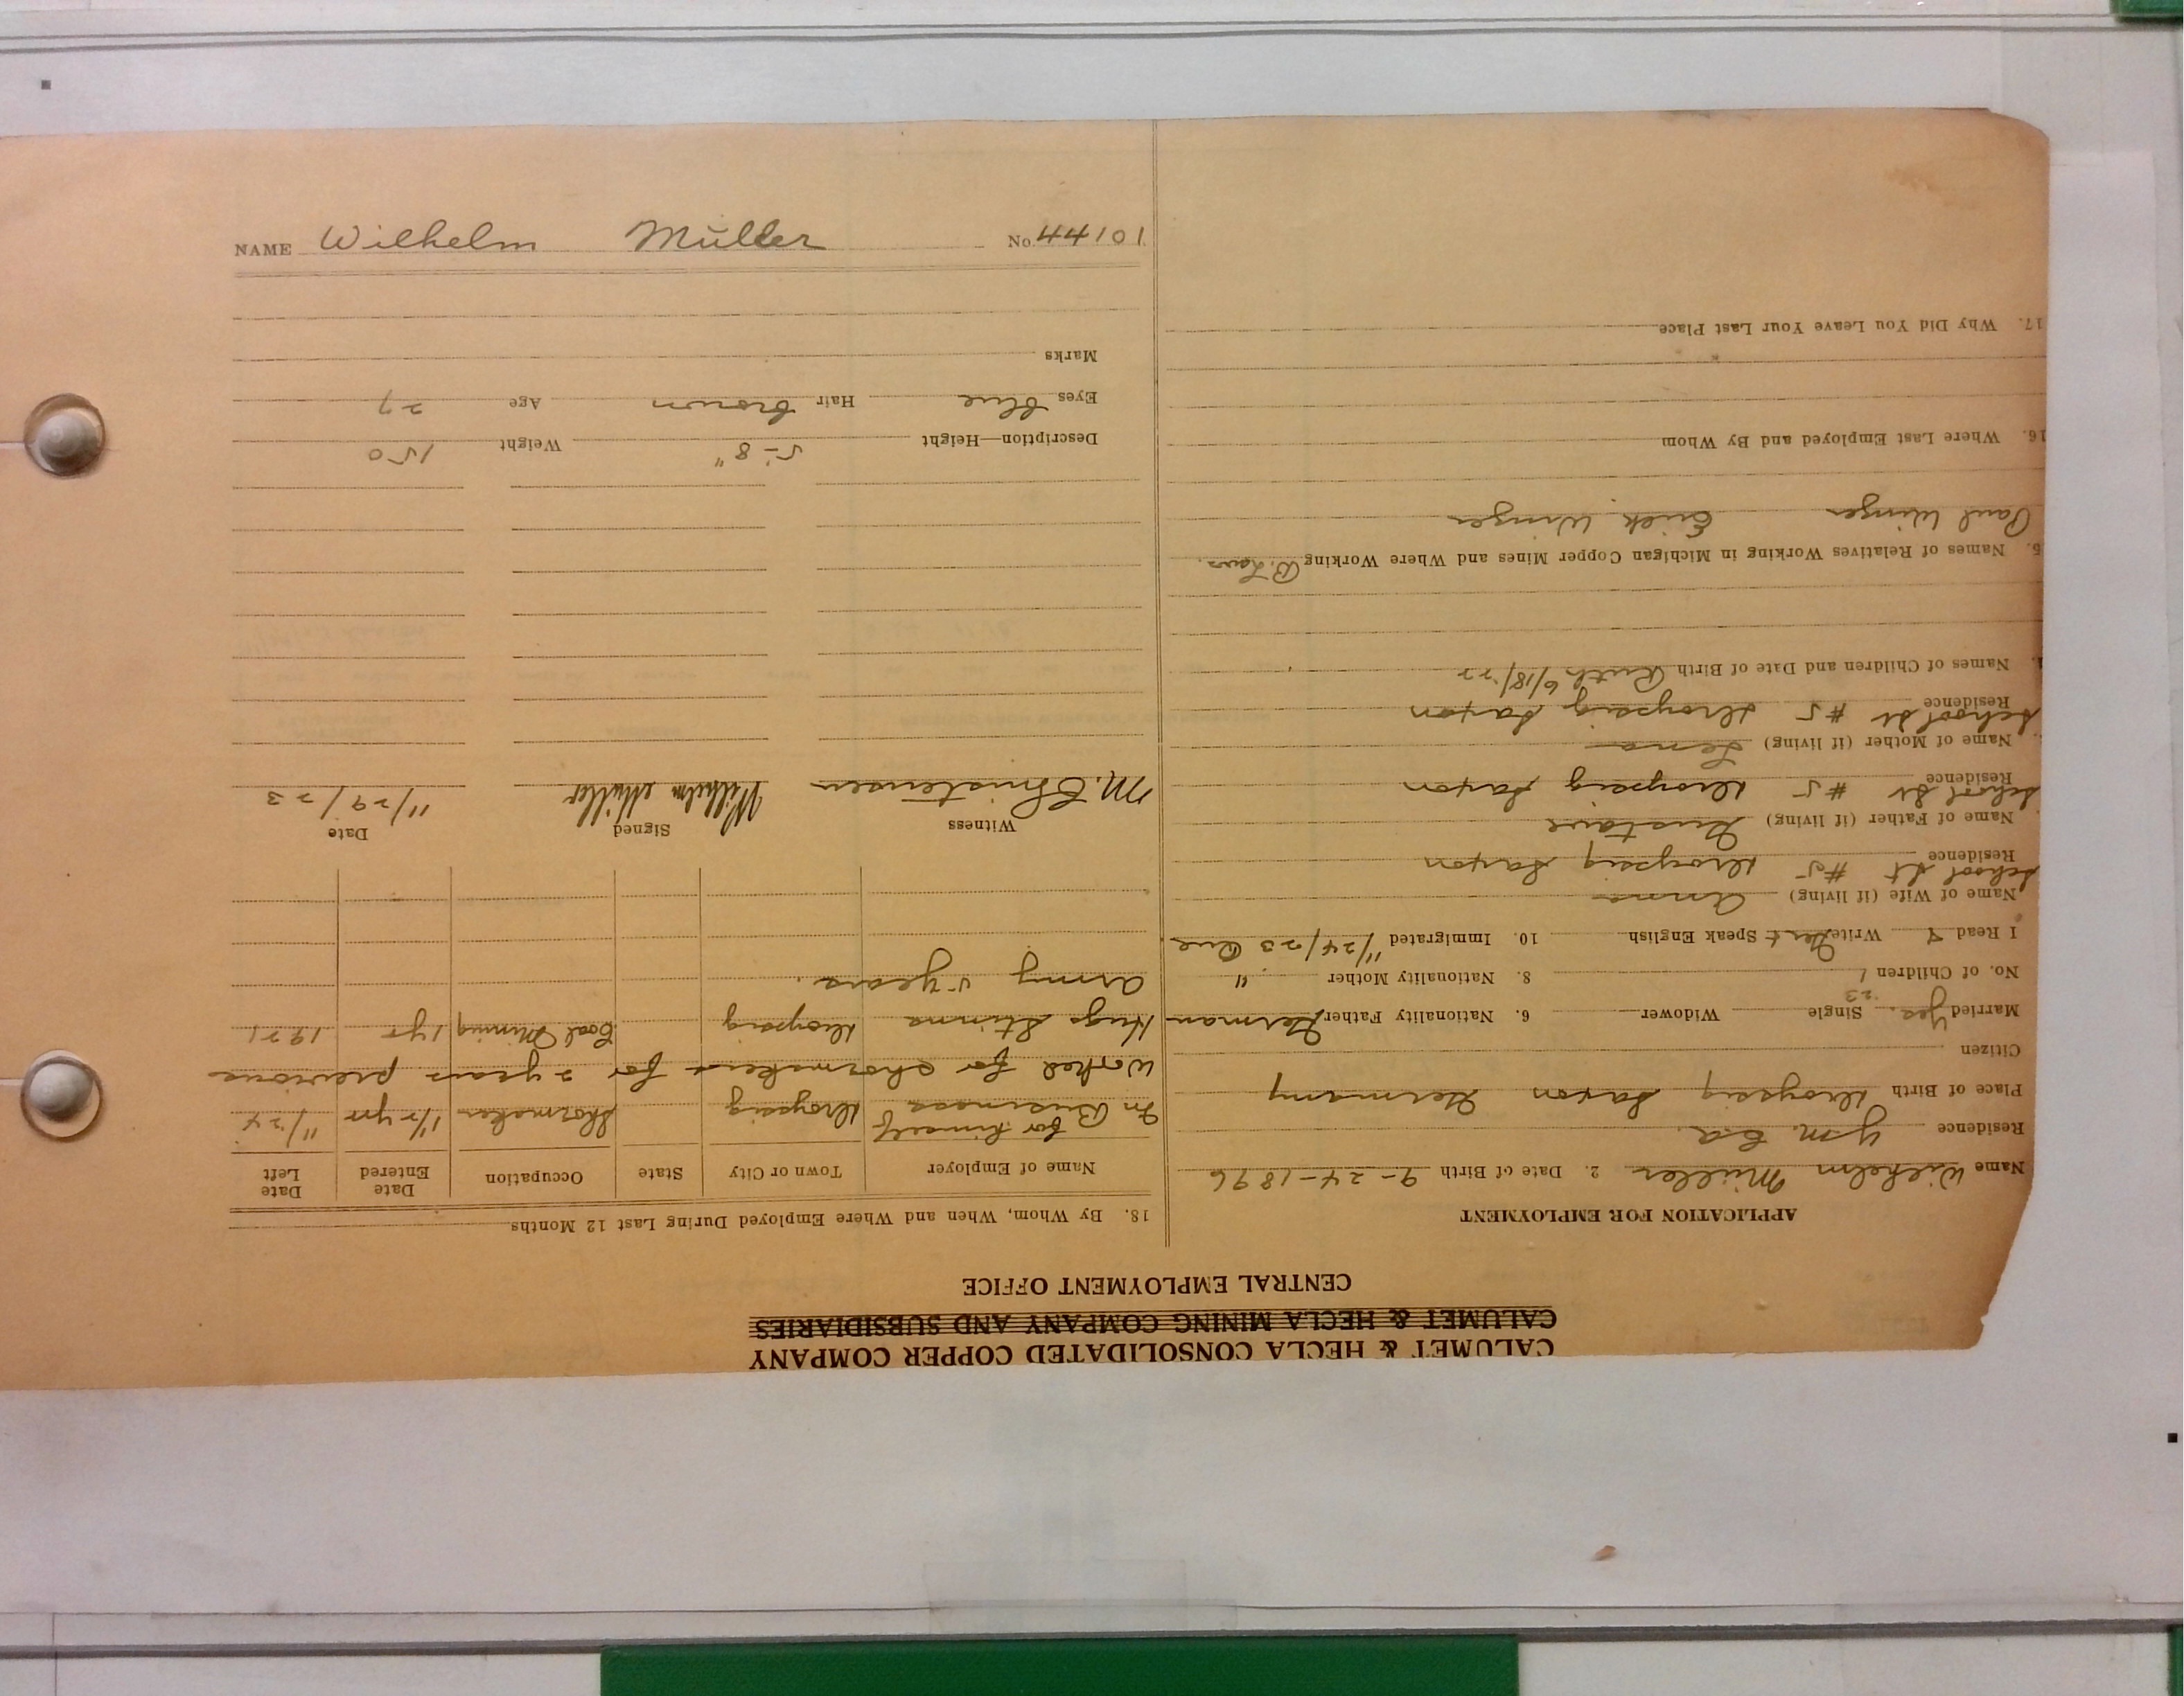 CALUMET & HECLA CONSOLIDATED COPPER COMPANY
CALUMET & HECLA MINING COMPANY AND SUBSIDIARIES
CENTRAL EMPLOYMENT OFFICE
APPLICATION FOR EMPLOYMENT
Name Wilhelm Müller 2. Date of Birth 9-24-1896
Residence Y.M.C.A.
Place of Birth Saxon Germany
Citizen
Married Yes 23 Single Widower 6. Nationality Father German
No. of Children 1 8. Nationality Mother "
I Read Y Write Speak English 10. Immigrated 11/24/23
Name of Wife (if living) Anna
School St #5 Saxon
Residence
Name of Father (if living) Gustave
School St #5 Saxon
Residence
Name of Mother (if living) Lena
School St #5 Saxon
Residence
Names of Children and Date of Birth Ruth 6/18/22
5. Names of Relatives Working in Michigan Copper Mines and Where Working
Paul Winger Erich Winger
16. Where Last Employed and By Whom
17. Why Did You Leave Your Last Place
18. By Whom, When and Where Employed During Last 12 Months
Name of Employer Town or City State Occupation Date Entered Date Left
In Business for himself Shoemaker 1 1/2 yrs 11/24
Worked for shoemakers for 2 years previous
Hugo Stinna Coal Mining 1 yr 1921
Army 5 years.
Witness Signed Date
M. Christensen Wilhelm Müller 11/29/23
Description—Height 5-8" Weight 150
Eyes blue Hair brown Age 27
Marks
NAME Wilhelm Müller No. 44101